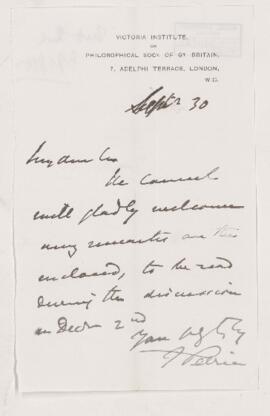 VICTORIA INSTITUTE,
OR
PHILOSOPHICAL SOCY OF GT BRITAIN,
7, ADELPHI TERRACE, LONDON,
W.C.
Septr 30
My dear Sir
The Council
will gladly welcome
any remarks on the
enclosed, to be read
during the discussion
on Decr 2nd
Yours
F Petrie